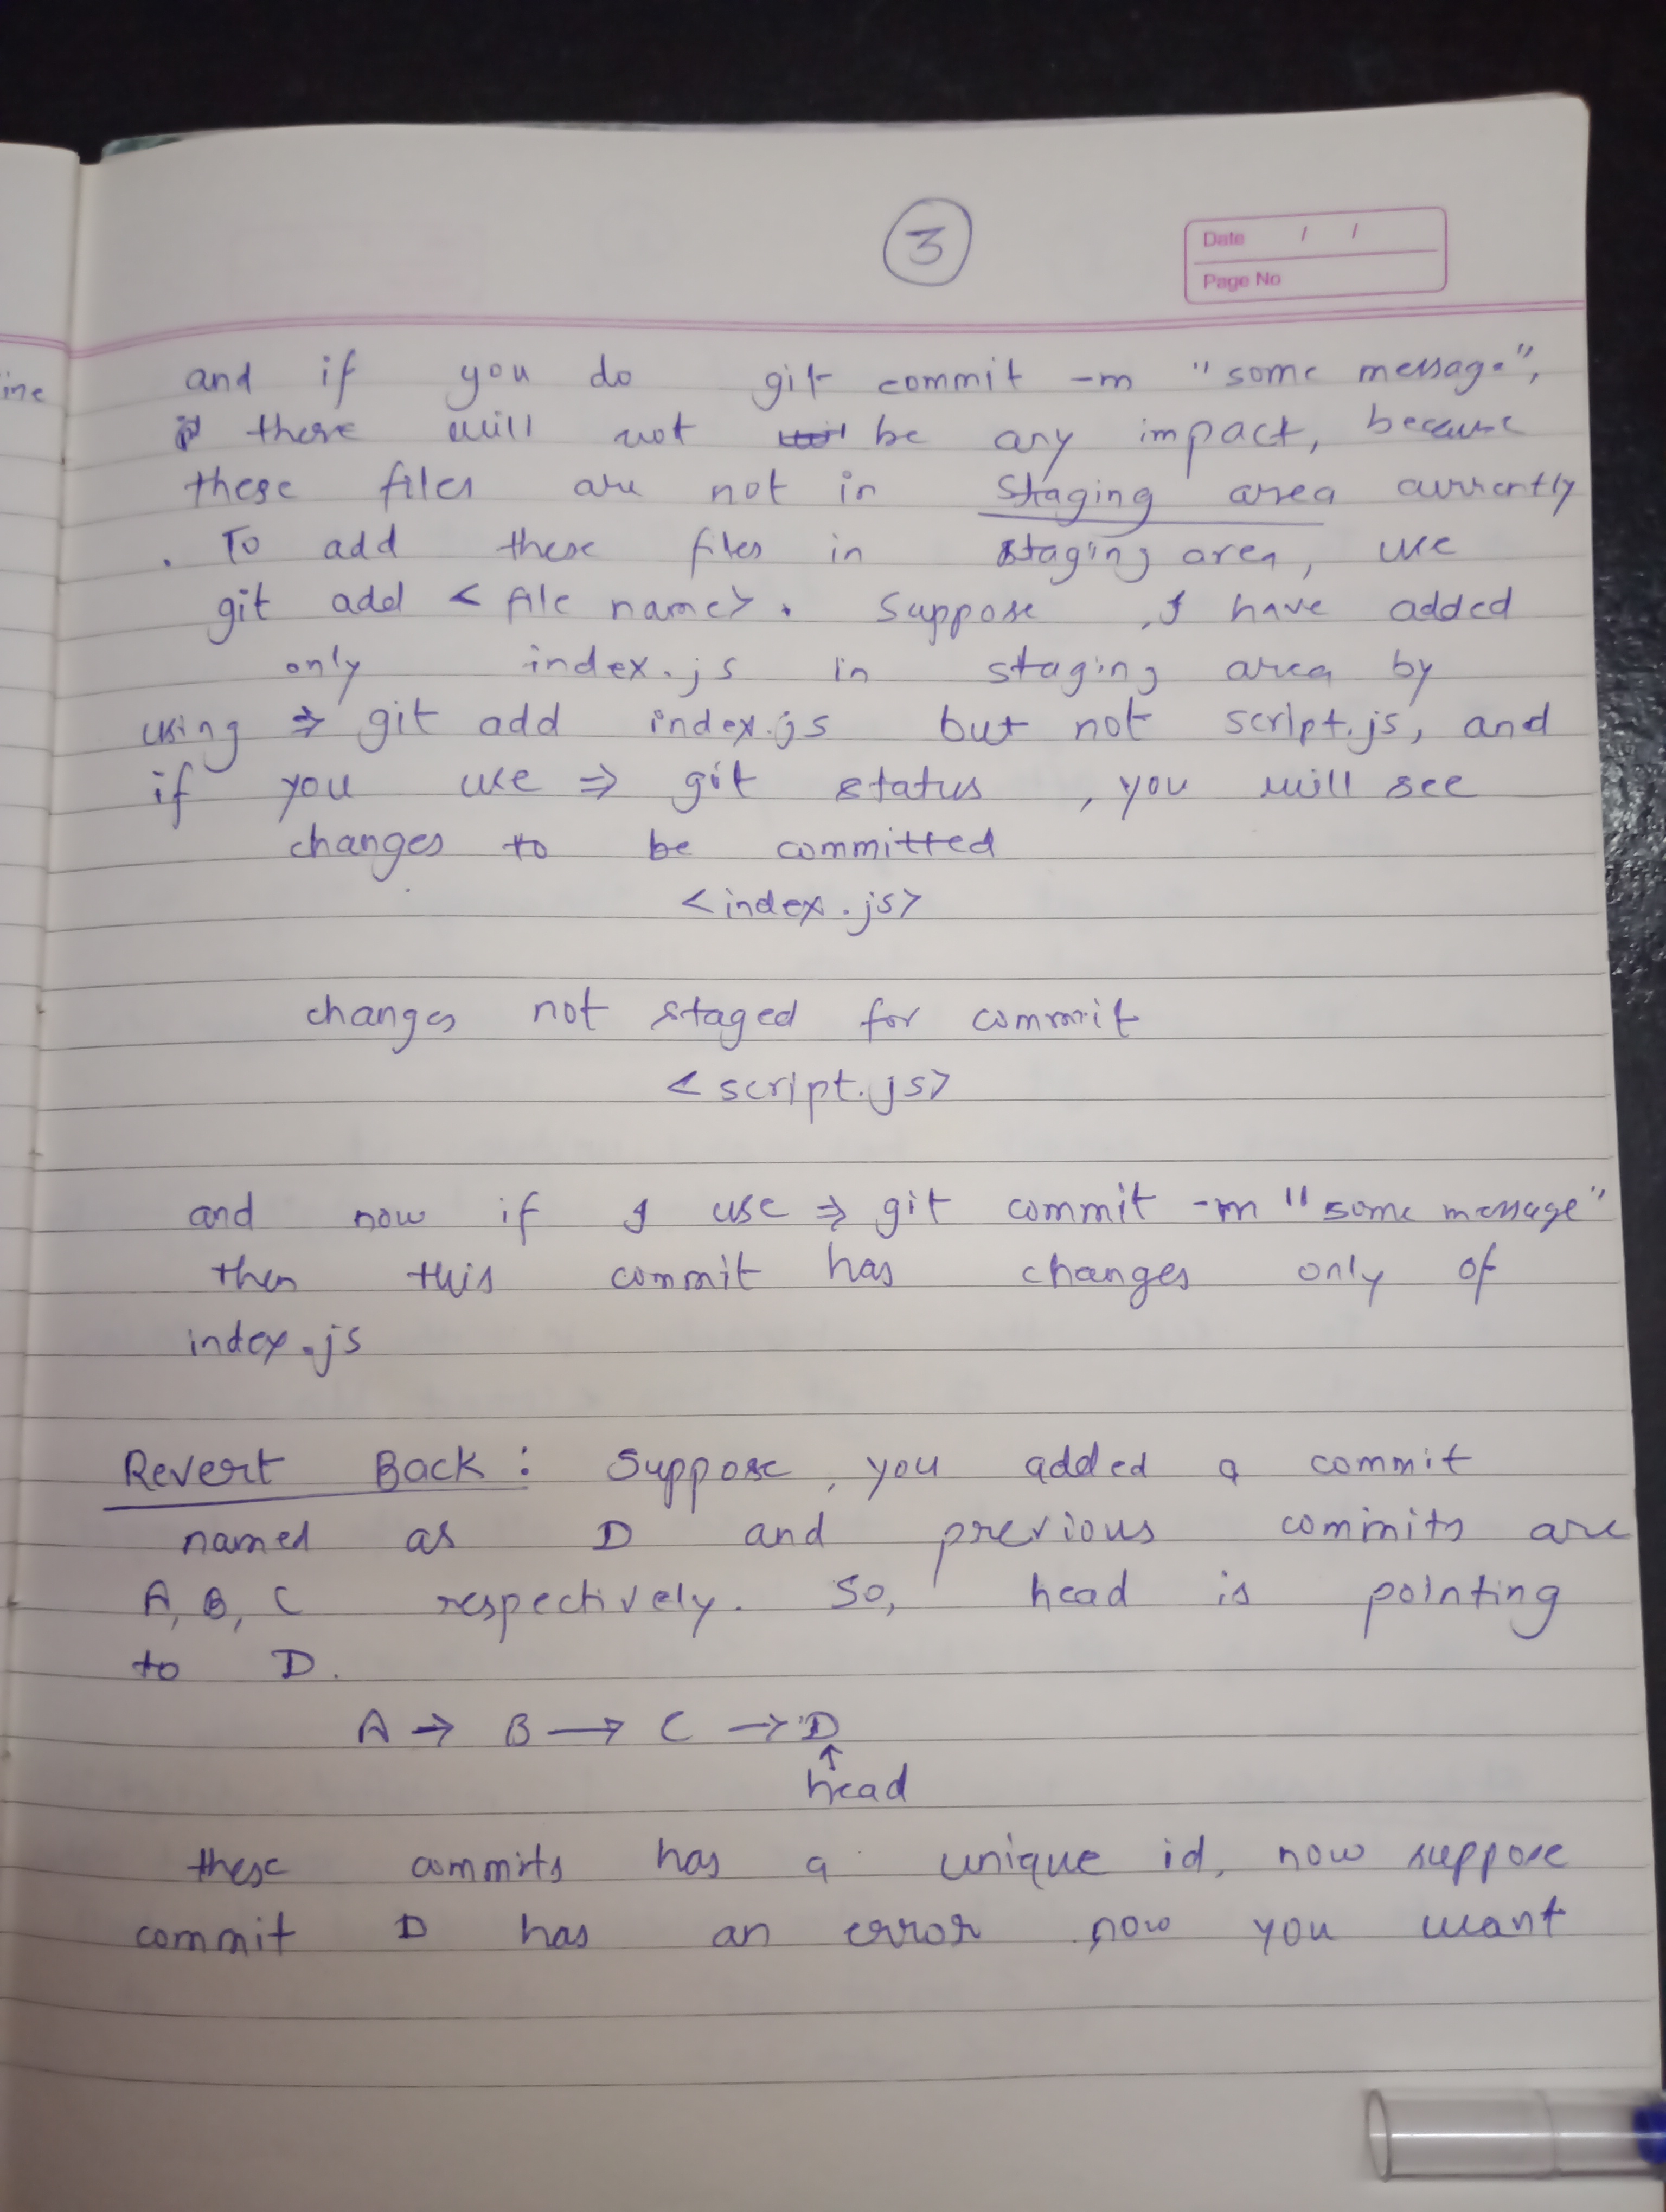 3
Date / /
Page No
ine
and if you do git commit -m "some message",
there will not be any impact, because
these files are not in Staging area currently
. To add these files in staging area, use
git add < file name>. Suppose, I have added
only index.js in staging area by
using ⇒ git add index.js but not script.js, and
if you use ⇒ git status, you will see
changes to be committed
<index.js>
changes not staged for commit
<script.js>
and now if I use ⇒ git commit -m "some message"
then this commit has changes only of
index.js
Revert Back: Suppose, you added a commit
named as D and previous commits are
A, B, C respectively. So, head is pointing
to D.
A → B → C → D
↑
head
these commits has a unique id, now suppose
commit D has an error now you want